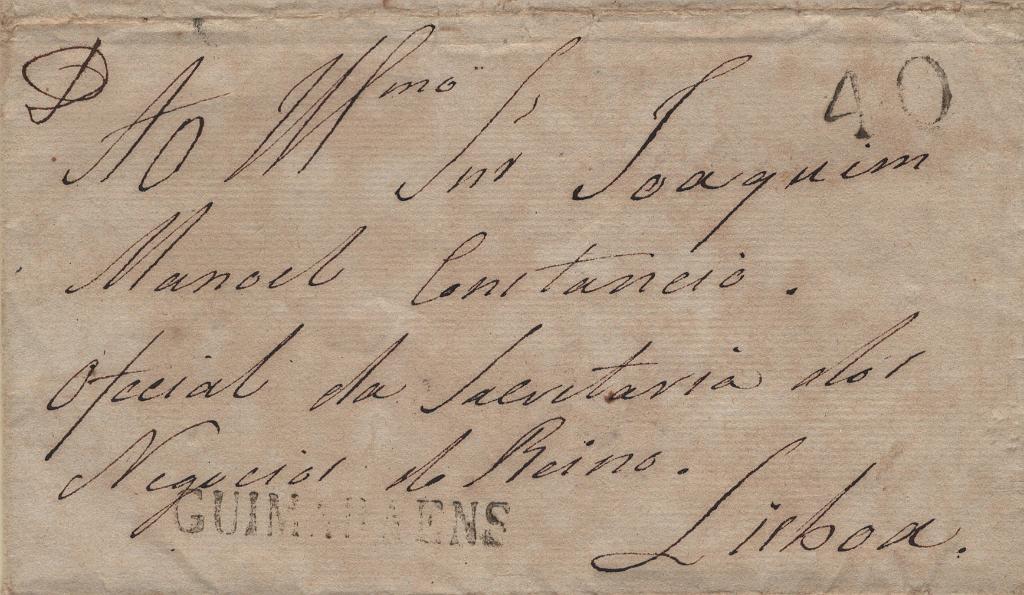 D
40
Ao Illmo Snr Joaquim
Manoel Constancio.
Official da Secretaria dos
Negocios do Reino.
GUIMARAENS
Lisboa.